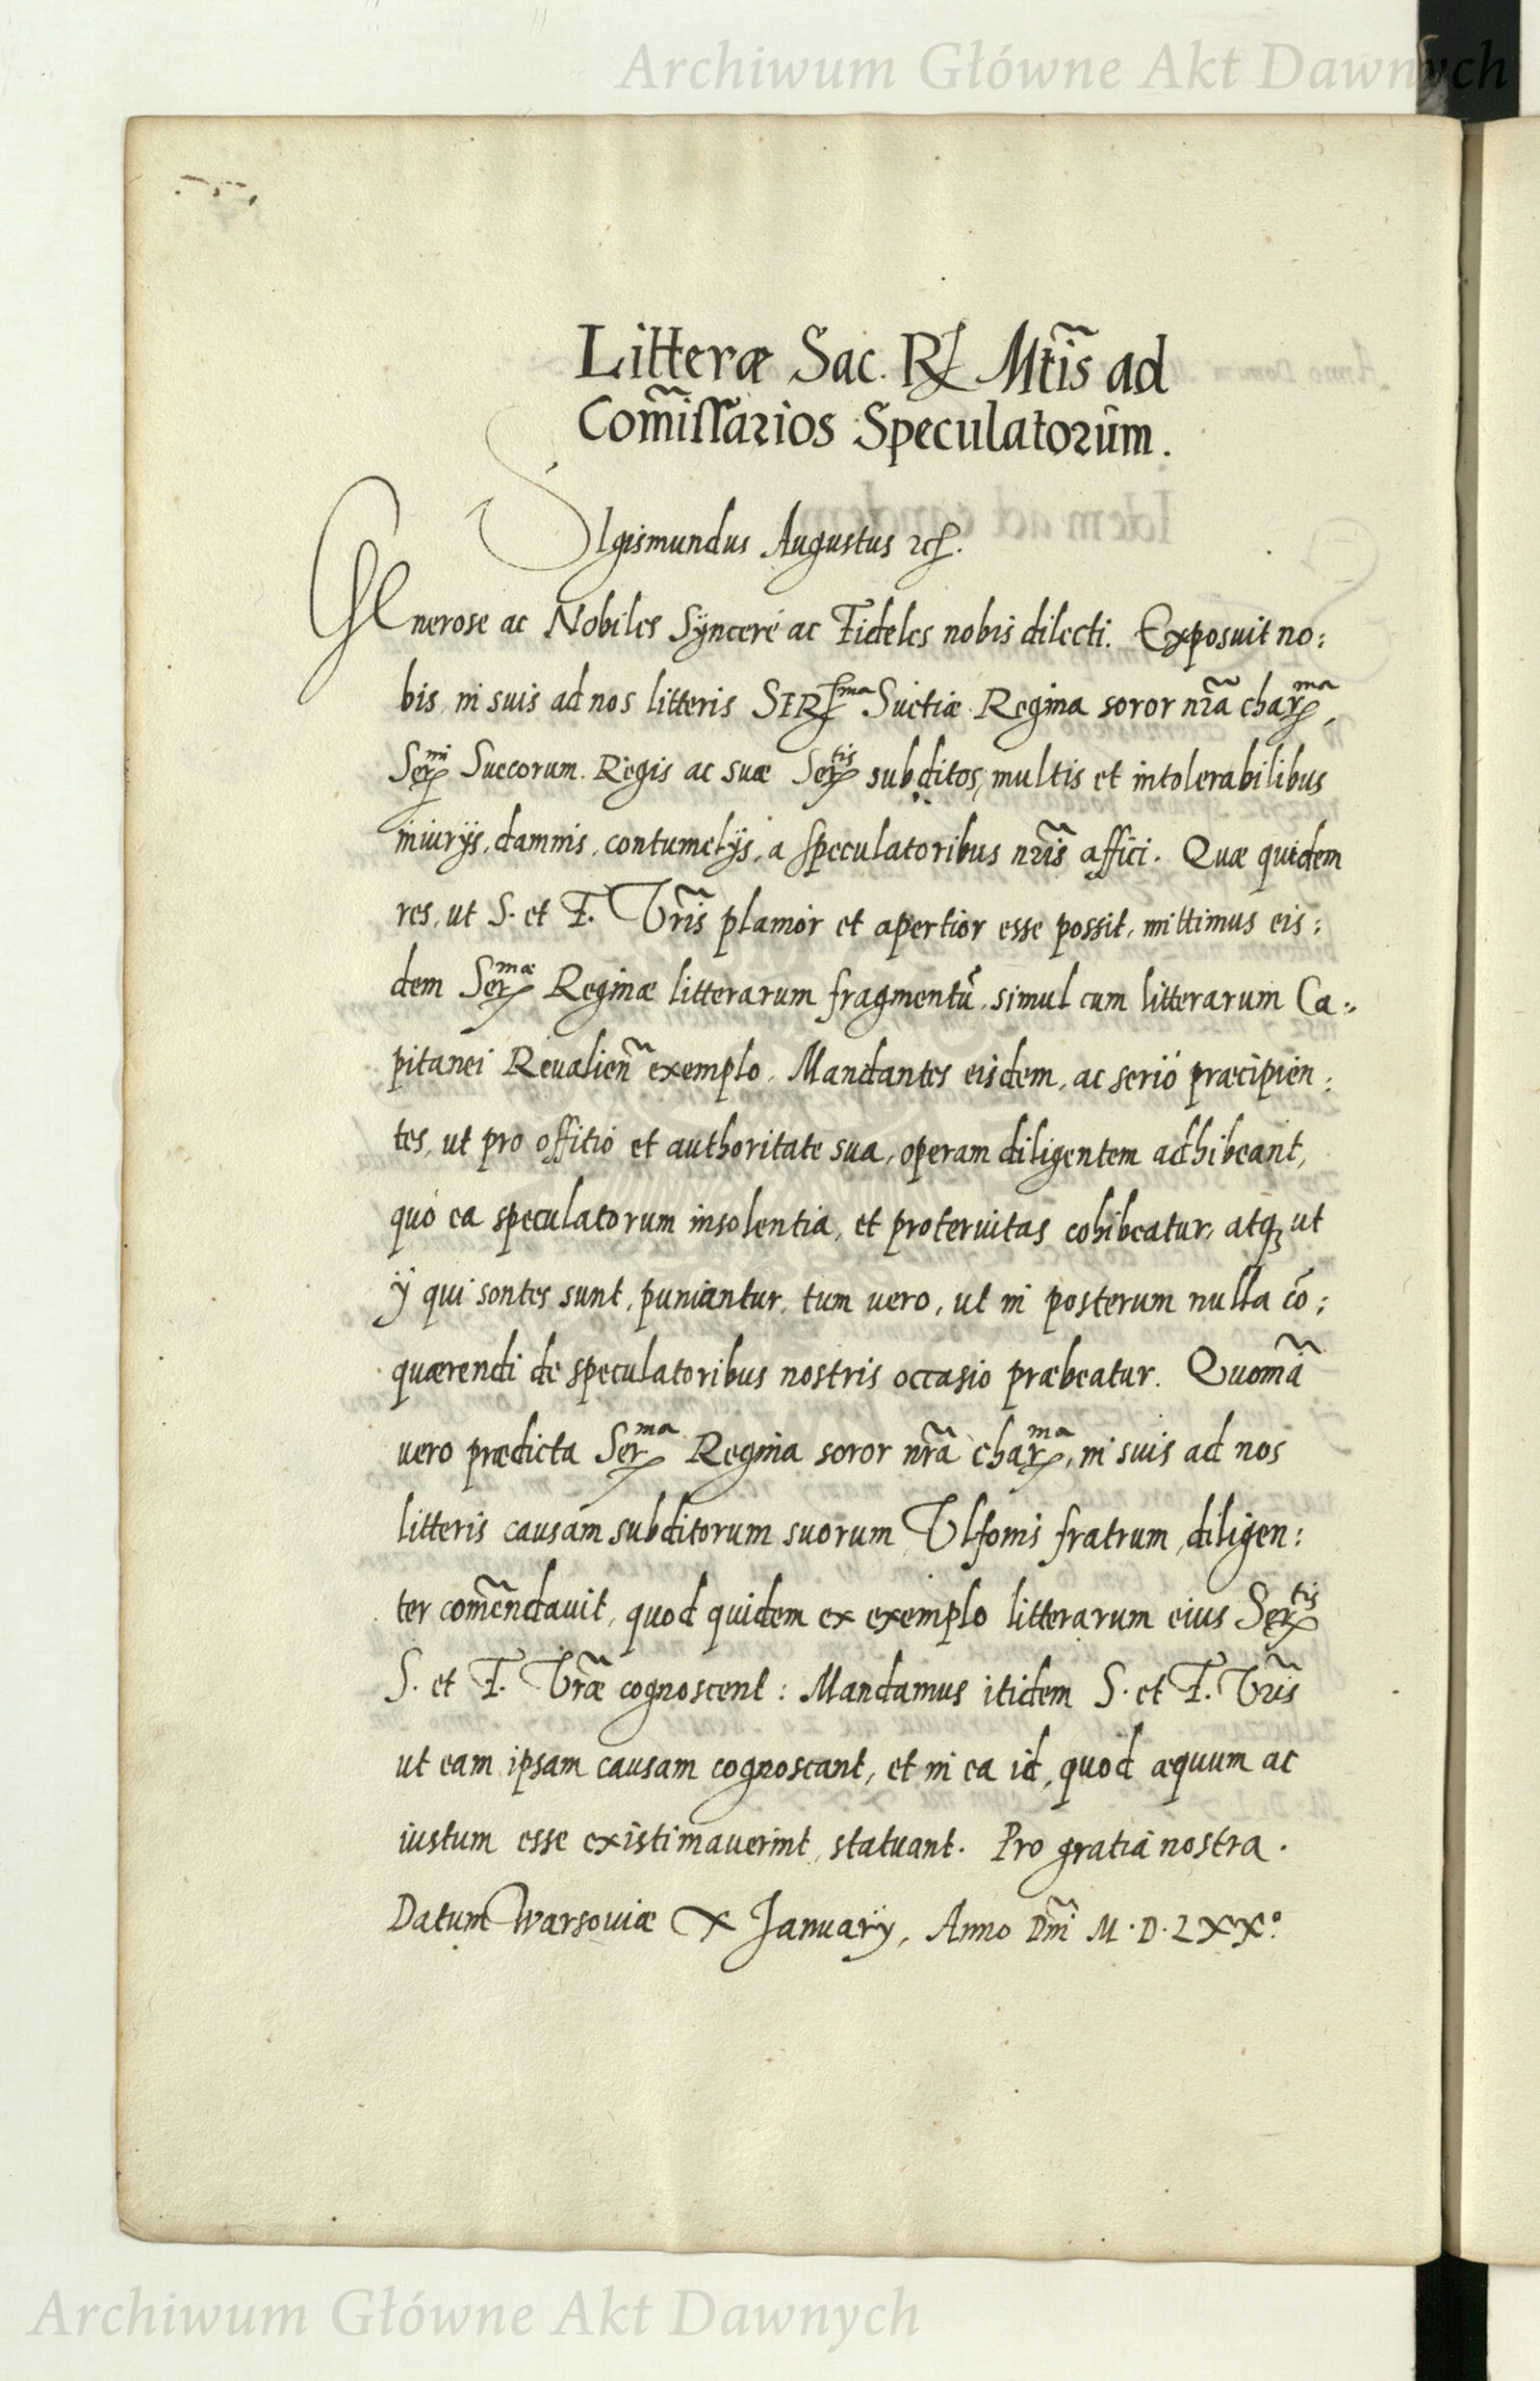 Archiwum Główne Akt Dawnych
Litteræ Sac. R. Mtĩs ad
Com̃issarios Speculatorum.
SIgismundus Augustus etc.
GEnerose ac Nobiles Sÿncere ac Fideles nobis dilecti. Exposuit no:
bis, in suis ad nos litteris SER^ma Suetiæ Regina soror nr̃a char^ma,
Ser^mi Suecorum Regis ac suæ Ser^tis subditos, multis et intolerabilibus
iniurÿs, damnis, contumelÿs, a speculatoribus nr̃is affici. Quæ quidem
res, ut S. et F. Vr̃is planior et apertior esse possit, mittimus eis:
dem Ser^mæ Reginæ litterarum fragmentũ, simul cum litterarum Ca:
pitanei Reualien̄ exemplo, Mandantes eisdem, ac serio præcipien:
tes, ut pro offitio et authoritate sua, operam diligentem adhibeant,
quo ea speculatorum insolentia, et proteruitas cohibeatur, atq̨ ut
ÿ qui sontes sunt, puniantur, tum vero, ut in posterum nulla cõ:
quærendi de speculatoribus nostris occasio præbeatur. Quoniã
vero prædicta Ser^ma Regina soror nr̃a char^ma, in suis ad nos
litteris causam subditorum suorum Vlfonis fratrum, diligen:
ter com̃endauit, quod quidem ex exemplo litterarum eius Ser^tis
S. et F. Vr̃æ cognoscent: Mandamus itidem S. et F. Vr̃is
ut eam ipsam causam cognoscant, et in ea id, quod æquum ac
iustum esse existimauerint, statuant. Pro gratia nostra.
Datum Warsouiæ X Januarÿ, Anno Dnĩ M.D.LXX°.
Archiwum Główne Akt Dawnych